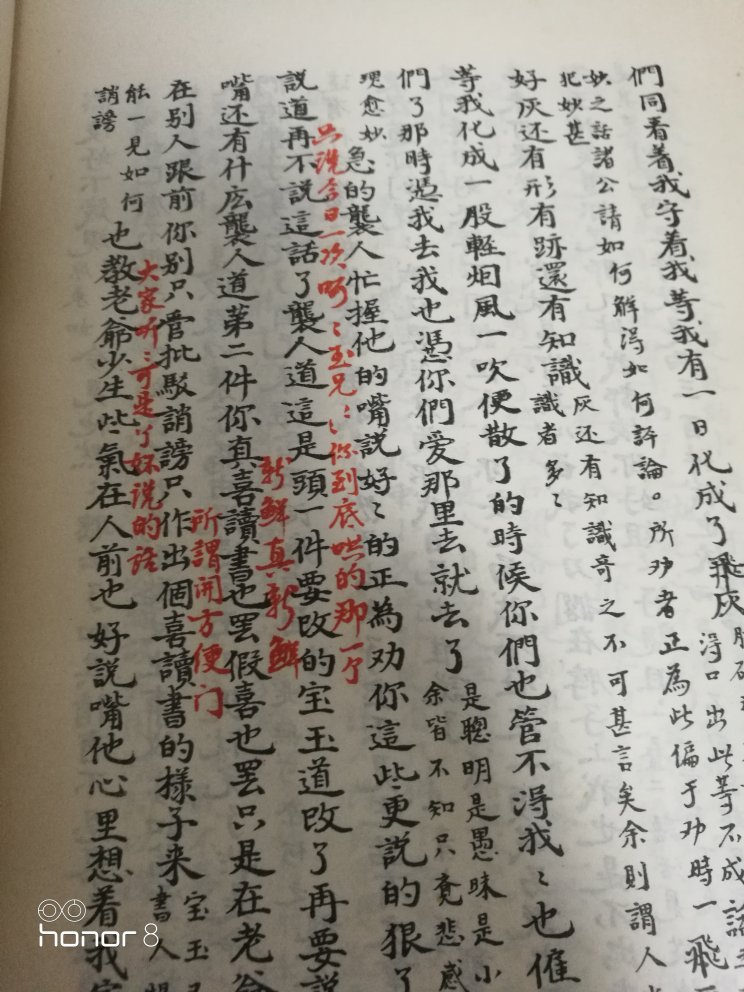 們同看着我守着我等我有一日化成了飛灰
得口出此等不成話
妙之話諸公請如何解得如何評論。所劝者正為此偏于劝時一飛
犯妙甚
好灰还有形有跡還有知識
灰还有知識奇之不可甚言矣余則謂人
識者多〻
等我化成一股軽烟風一吹便散了的時候你們也管不得我〻也傕
們了那時憑我去我也憑你們愛那里去就去了
是聰明是愚昧是小
余皆不知只竟悲感
愈妙
急的襲人忙握他的嘴説好〻的正為劝你這些更説的狠了
只説今日一次呵〻玉兄〻你到底哄的那一个
説道再不説這話了襲人道這是頭一件要攺的宝玉道攺了再要説
新鮮真新鮮
嘴还有什庅襲人道第二件你真喜讀書也罷假喜也罷只是在老爺
所謂開方便门
在别人跟前你别只管批駁誚謗只作出個喜讀書的樣子来
宝玉
書人
能一見如何
誚謗
大家听〻可是丫嬛説的話
也教老爺少生些氣在人前也好説嘴他心里想着我
honor 8